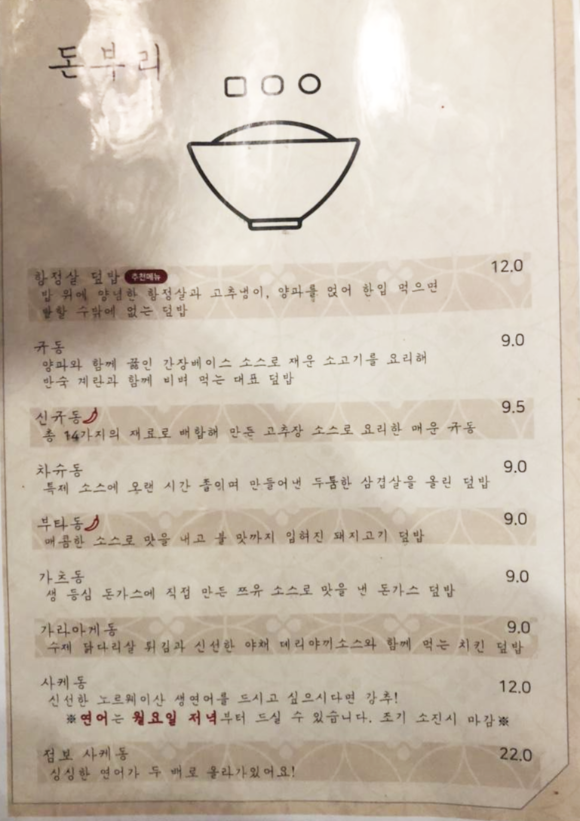 돈부리
항정살 덮밥 추천메뉴 12.0
밥 위에 양념한 항정살과 고추냉이, 양파를 얹어 한입 먹으면
반할 수밖에 없는 덮밥
규동 9.0
양파와 함께 끓인 간장베이스 소스로 재운 소고기를 요리해
반숙 계란과 함께 비벼 먹는 대표 덮밥
신규동 9.5
총 14가지의 재료로 배합해 만든 고추장 소스로 요리한 매운 규동
차슈동 9.0
특제 소스에 오랜 시간 졸이며 만들어낸 두툼한 삼겹살을 올린 덮밥
부타동 9.0
매콤한 소스로 맛을 내고 불 맛까지 입혀진 돼지고기 덮밥
가츠동 9.0
생 등심 돈가스에 직접 만든 쯔유 소스로 맛을 낸 돈가스 덮밥
가라아게동 9.0
수제 닭다리살 튀김과 신선한 야채 데리야끼소스와 함께 먹는 치킨 덮밥
사케동 12.0
신선한 노르웨이산 생연어를 드시고 싶으시다면 강추!
※연어는 월요일 저녁부터 드실 수 있습니다. 조기 소진시 마감※
점보 사케동 22.0
싱싱한 연어가 두 배로 올라가있어요!